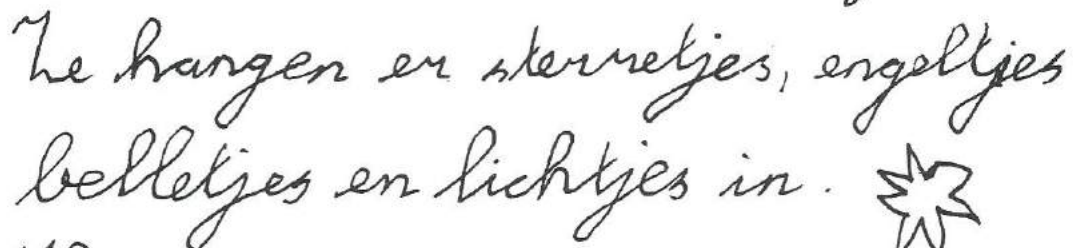 Ze hangen er sterretjes, engeltjes
belletjes en lichtjes in.